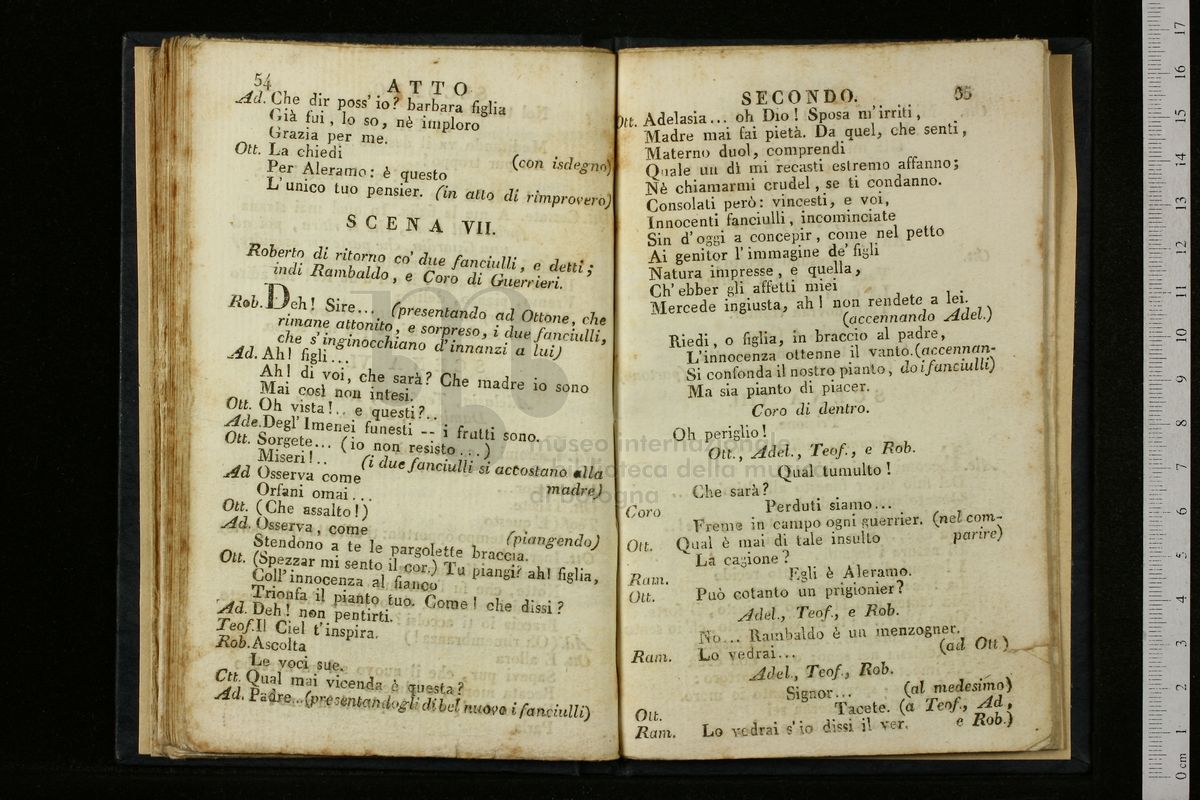 54
ATTO
Ad. Che dir poss' io? barbara figlia
Già fui, lo so, nè imploro
Grazia per me.
Ott. La chiedi
Per Aleramo: è questo (con isdegno)
L'unico tuo pensier. (in atto di rimprovero)
SCENA VII.
Roberto di ritorno co' due fanciulli, e detti;
indi Rambaldo, e Coro di Guerrieri.
Rob. Deh! Sire... (presentando ad Ottone, che
rimane attonito, e sorpreso, i due fanciulli,
che s'inginocchiano d'innanzi a lui)
Ad. Ah! figli...
Ah! di voi, che sarà? Che madre io sono
Mai così non intesi.
Ott. Oh vista!.. e questi?..
Ade. Degl' Imenei funesti -- i frutti sono.
Ott. Sorgete... (io non resisto...)
Miseri!.. (i due fanciulli si accostano alla
madre)
Ad Osserva come
Orfani omai...
Ott. (Che assalto!)
Ad. Osserva, come (piangendo)
Stendono a te le pargolette braccia.
Ott. (Spezzar mi sento il cor.) Tu piangi? ah! figlia,
Coll' innocenza al fianco
Trionfa il pianto tuo. Come! che dissi?
Ad. Deh! non pentirti.
Teof. Il Ciel t'inspira.
Rob. Ascolta
Le voci sue.
Ctt. Qual mai vicenda è questa?
Ad. Padre.. (presentandogli di bel nuovo i fanciulli)
SECONDO.
55
Ott. Adelasia... oh Dio! Sposa m'irriti,
Madre mai fai pietà. Da quel, che senti,
Materno duol, comprendi
Quale un dì mi recasti estremo affanno;
Nè chiamarmi crudel, se ti condanno.
Consolati però: vincesti, e voi,
Innocenti fanciulli, incominciate
Sin d'oggi a concepir, come nel petto
Ai genitor l'immagine de' figli
Natura impresse, e quella,
Ch' ebber gli affetti miei
Mercede ingiusta, ah! non rendete a lei.
(accennando Adel.)
Riedi, o figlia, in braccio al padre,
L'innocenza ottenne il vanto. (accennan-
Si confonda il nostro pianto, do i fanciulli)
Ma sia pianto di piacer.
Coro di dentro.
Oh periglio!
Ott., Adel., Teof., e Rob.
Qual tumulto!
Che sarà?
Perduti siamo...
Coro
Freme in campo ogni guerrier. (nel com-
Ott. Qual è mai di tale insulto parire)
La cagione?
Ram. Egli è Aleramo.
Ott. Può cotanto un prigionier?
Adel., Teof., e Rob.
No... Rambaldo è un menzogner.
Ram. Lo vedrai... (ad Ott)
Adel., Teof., Rob.
Signor... (al medesimo)
Ott. Tacete. (a Teof., Ad,
Ram. Lo vedrai s'io dissi il ver. e Rob.)
museo internazionale
e biblioteca della musica
di bologna
0 cm 1 2 3 4 5 6 7 8 9 10 11 12 13 14 15 16 17